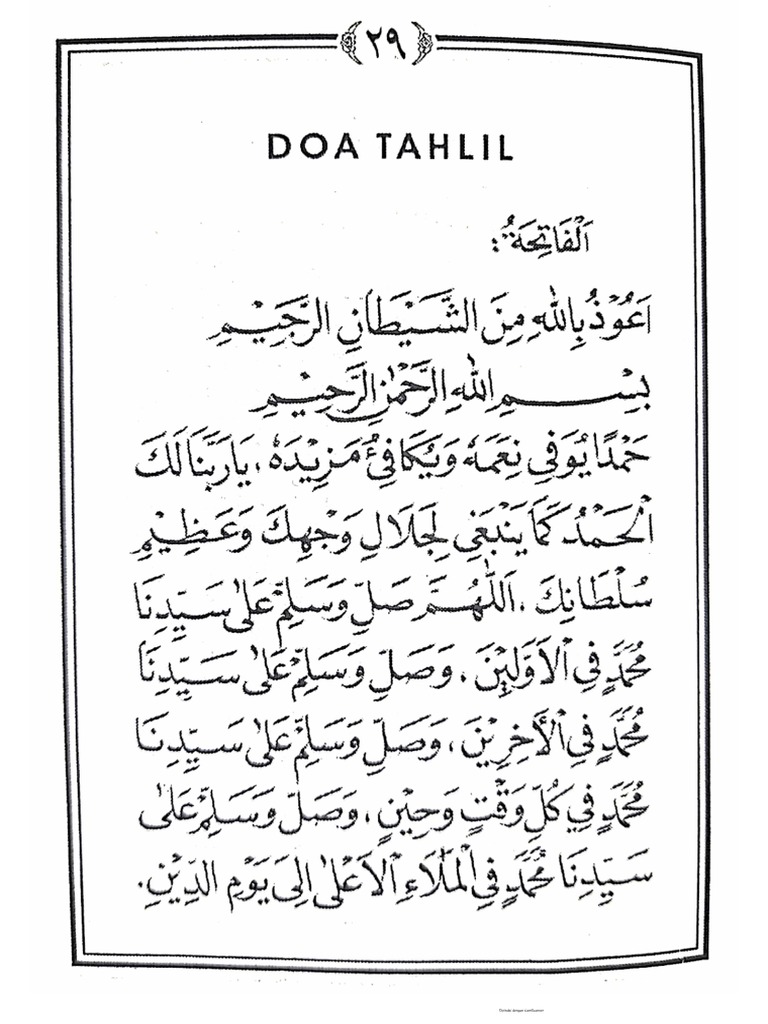 ٢٩
DOA TAHLIL
اَلْفَاتِحَةُ :
اَعُوْذُ بِاللهِ مِنَ الشَّيْطَانِ الرَّجِيْمِ
بِسْمِ اللهِ الرَّحْمٰنِ الرَّحِيْمِ
حَمْدًا يُوَفِي نِعَمَهُ وَيُكَافِئُ مَزِيْدَهُ ، يَارَبَّنَالَكَ
الْحَمْدُ كَمَا يَنْبَغِي لِجَلَالِ وَجْهِكَ وَعَظِيْمِ
سُلْطَانِكَ ، اَللّٰهُمَّ صَلِّ وَسَلِّمْ عَلٰى سَيِّدِنَا
مُحَمَّدٍ فِي الْاَوَّلِيْنَ ، وَصَلِّ وَسَلِّمْ عَلٰى سَيِّدِنَا
مُحَمَّدٍ فِي الْأَخِرِيْنَ ، وَصَلِّ وَسَلِّمْ عَلٰى سَيِّدِنَا
مُحَمَّدٍ فِي كُلِّ وَقْتٍ وَحِيْنٍ ، وَصَلِّ وَسَلِّمْ عَلٰى
سَيِّدِنَا مُحَمَّدٍ فِي الْمَلَاءِ الْاَعْلٰى اِلَى يَوْمِ الدِّيْنِ .